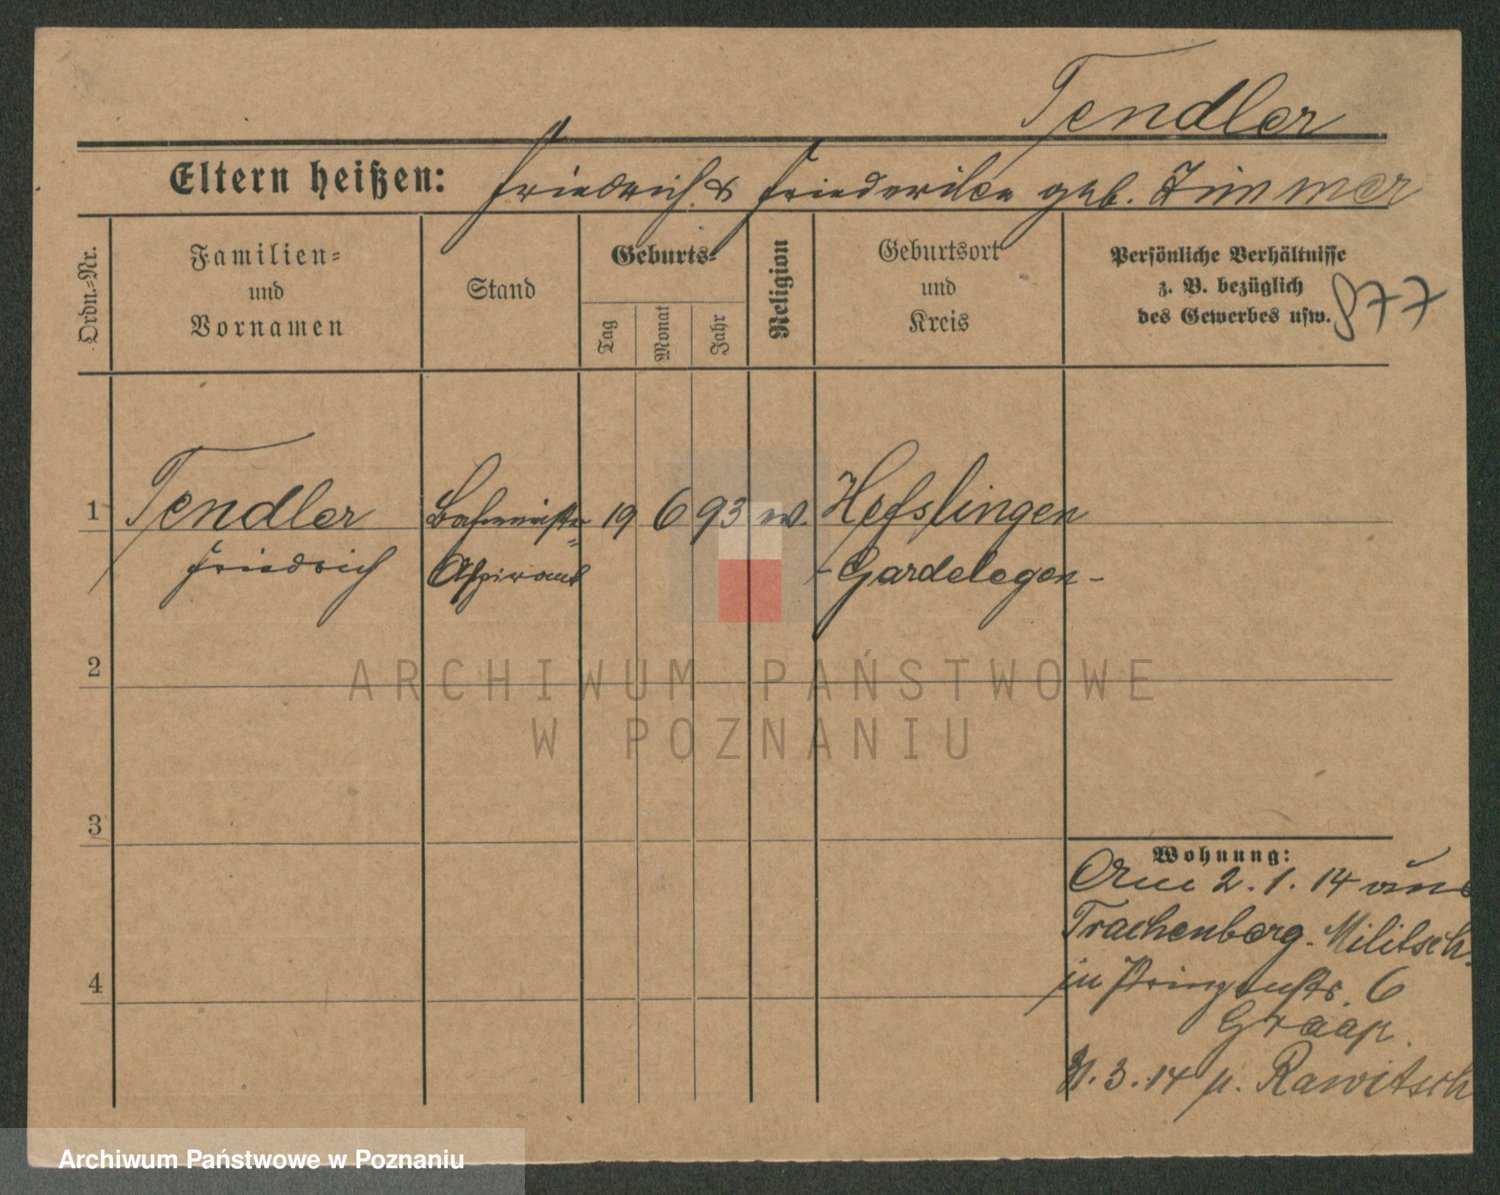 Tendler
Eltern heißen: Friedrich & Friederike geb. Zimmer
Ordn.-Nr.
Familien-
und
Vornamen
Stand
Geburts-
Tag
Monat
Jahr
Religion
Geburtsort
und
Kreis
Persönliche Verhältnisse
z. B. bezüglich
des Gewerbes usw.
877
1 Tendler Bahnmeister= 19 6 93 ev. Hefslingen
Friedrich Aspirant -Gardelegen-
2
3
4
Wohnung:
Am 2.1.14 aus
Trachenberg-Militsch
in Prinzenstr. 6
Graap.
31.3.14 n. Rawitsch
ARCHIWUM PAŃSTWOWE
W POZNANIU
Archiwum Państwowe w Poznaniu